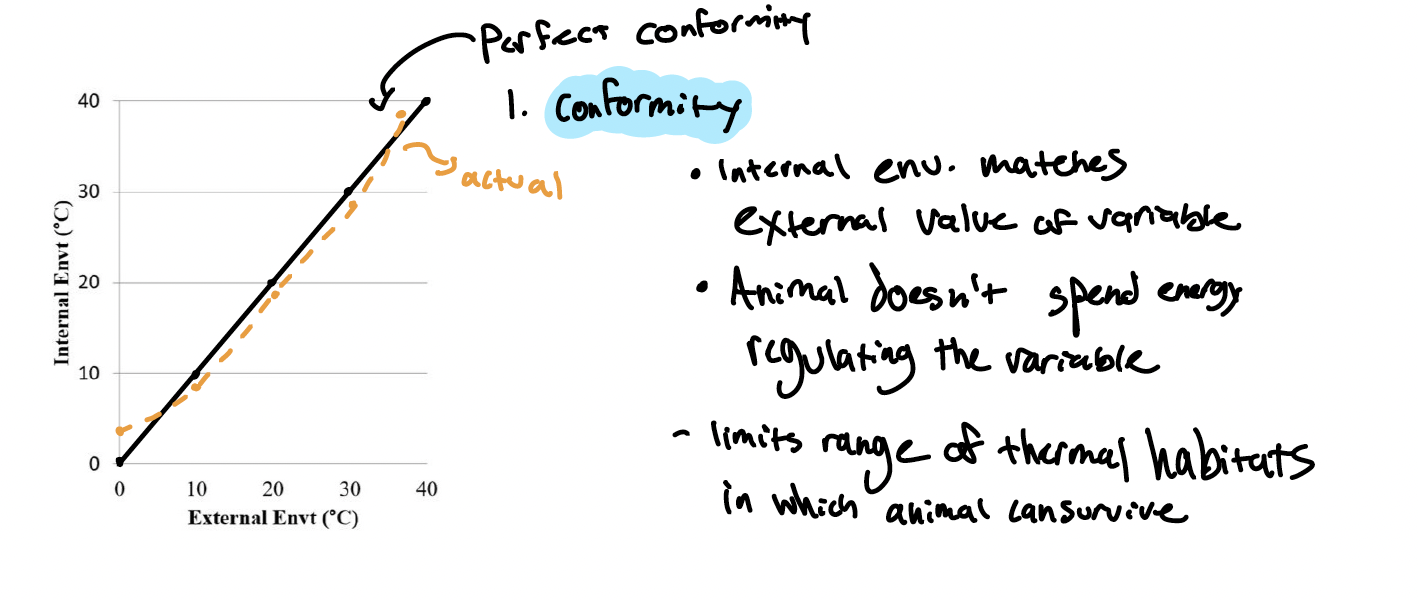 Perfect conformity
1. Conformity
40
30
20
10
0
Internal Envt (°C)
0 10 20 30 40
External Envt (°C)
actual
• Internal env. matches
external value of variable
• Animal doesn't spend energy
regulating the variable
- limits range of thermal habitats
in which animal can survive